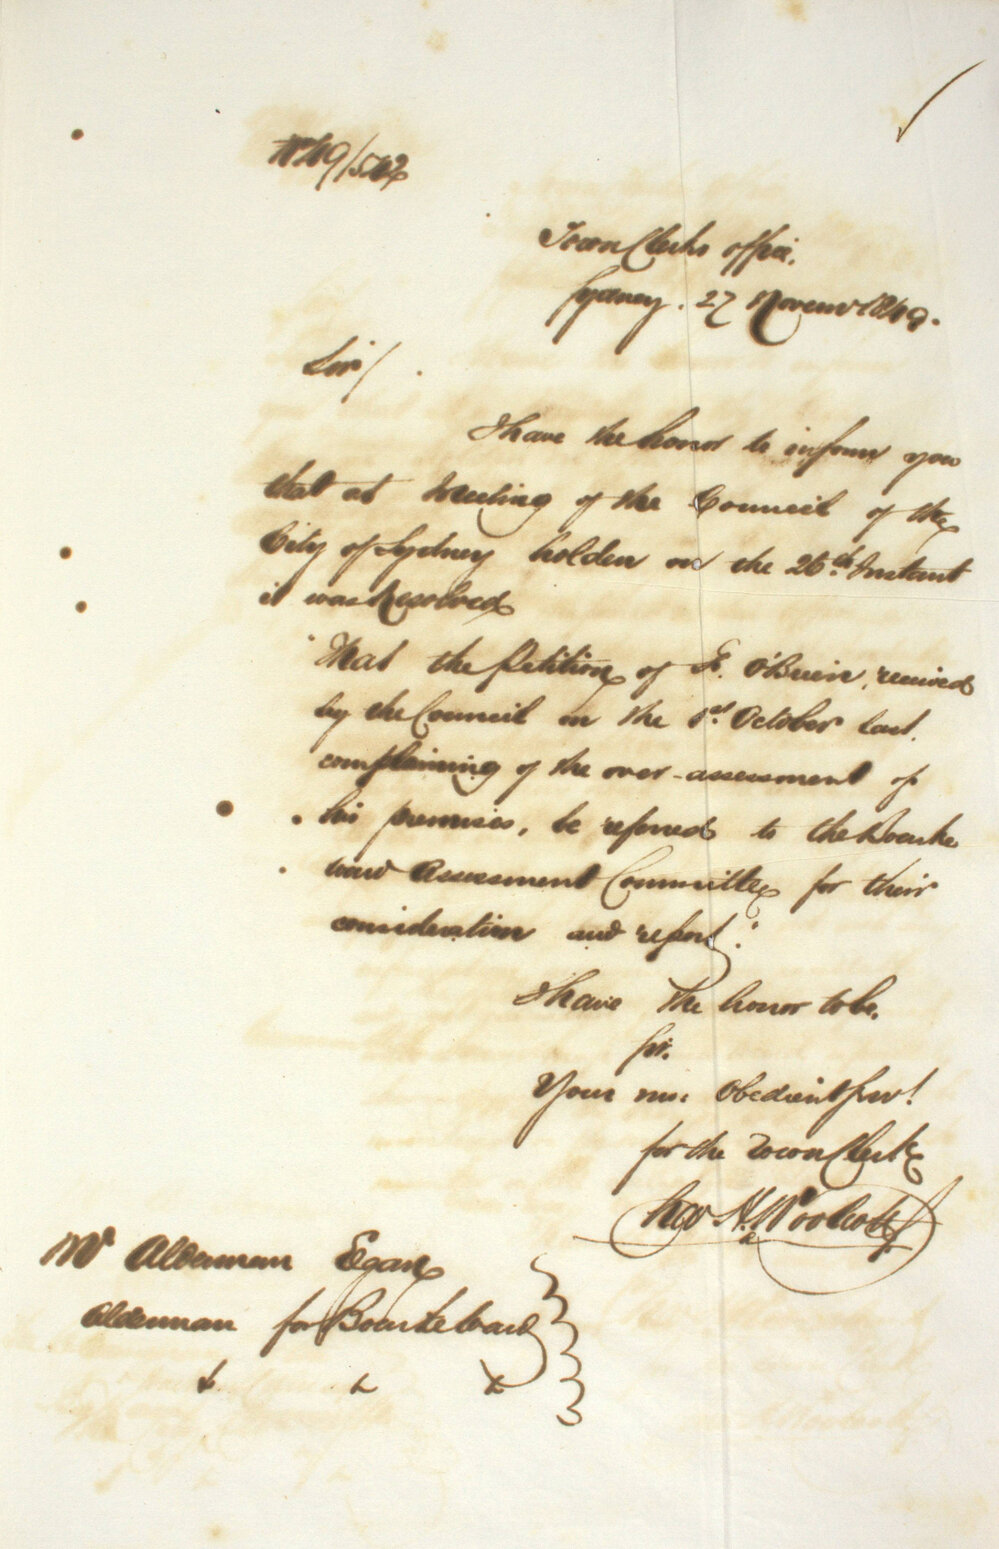 No 49/542
Town Clerks office.
Sydney. 27 Novemr 1849.
Sir/.
I have the honor to inform you
that at Meeting of the Council of the
City of Sydney holden on the 26th Instant
it was Resolved
"That the Petition of F. O'Brien, received
by the Council on the 1st October last.
complaining of the over-assessment of
his premises, be referred to the Bourke
ward Assessment Committee for their
consideration and report."
I have the honor to be.
Sir.
Your Obedient Servt
for the Town Clerk
Chas H. Woolcott
Mr Alderman Egan
Alderman for Bourke ward